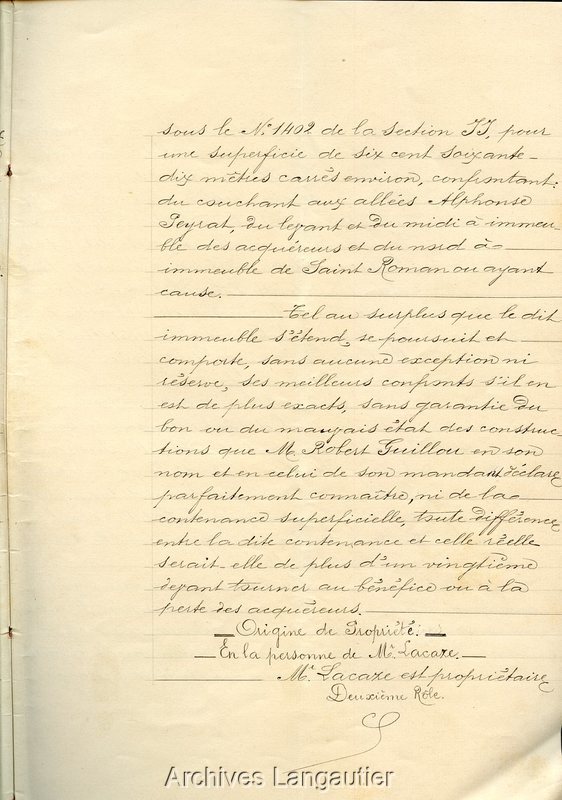 sous le N° 1402 de la section JJ, pour
une superficie de six cent soixante-
dix mètres carrés environ, confrontant:
du couchant aux allées Alphonse
Peyrat, du levant et du midi à immeu-
ble des acquéreurs et du nord à
immeuble de Saint Roman ou ayant
cause.
Tel au surplus que le dit
immeuble s'étend, se poursuit et
comporte, sans aucune exception ni
réserve, ses meilleurs confronts s'il en
est de plus exacts, sans garantie du
bon ou du mauvais état des construc-
tions que M. Robert Guillou en son
nom et en celui de son mandant déclare
parfaitement connaître, ni de la
contenance superficielle, toute différence
entre la dite contenance et celle réelle
serait-elle de plus d'un vingtième
devant tourner au bénéfice ou à la
perte des acquéreurs.
Origine de Propriété.
En la personne de Mr. Lacaze.
Mr. Lacaze est propriétaire
Deuxième Rôle.
Archives Langautier